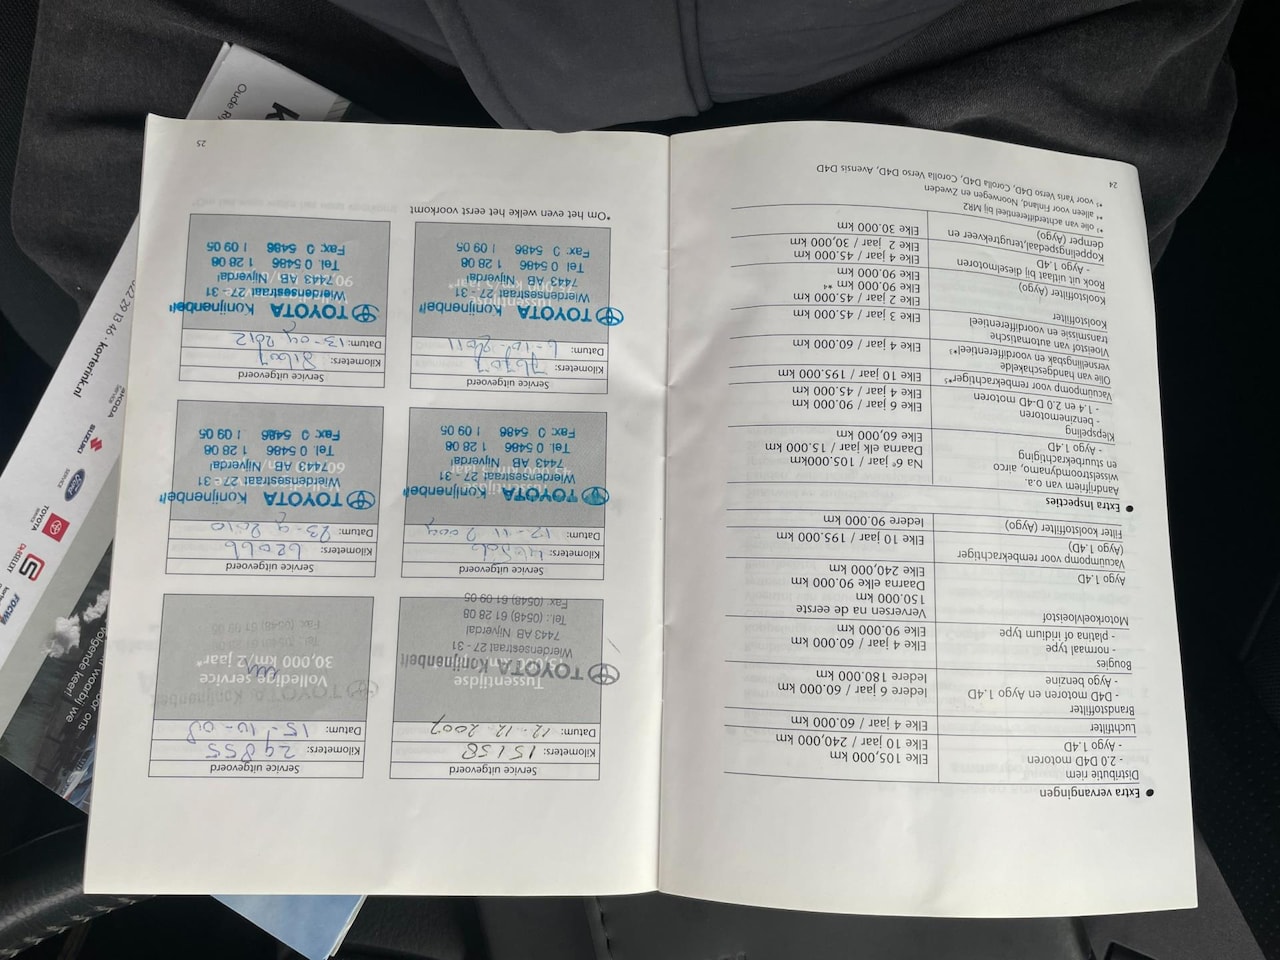 • Extra vervangingen
Distributie riem
- 2.0 D4D motoren Elke 105,000 km
- Aygo 1.4D Elke 10 jaar / 240,000 km
Luchtfilter Elke 4 jaar / 60.000 km
Brandstoffilter
- D4D motoren en Aygo 1.4D Iedere 6 jaar / 60.000 km
- Aygo benzine Iedere 180.000 km
Bougies
- normaal type Elke 4 jaar / 60.000 km
- platina of iridium type Elke 90.000 km
Motorkoelvloeistof Verversen na de eerste
150.000 km
Daarna elke 90.000 km
Aygo 1.4D Elke 240,000 km
Vacuümpomp voor rembekrachtiger
(Aygo 1.4D) Elke 10 jaar / 195.000 km
Filter koolstoffilter (Aygo) Iedere 90.000 km
• Extra Inspecties
Aandrijfriem van o.a.
wisselstroomdynamo, airco
en stuurbekrachtiging Na 6e jaar / 105.000km
Daarna elk jaar / 15.000 km
- Aygo 1.4D Elke 60,000 km
Klepspeling
- benzinemotoren Elke 6 jaar / 90,000 km
- 1.4 en 2.0 D-4D motoren Elke 4 jaar / 45.000 km
Vacuümpomp voor rembekrachtiger*5 Elke 10 jaar / 195.000 km
Olie van handgeschakelde
versnellingsbak en voordifferentieel*3 Elke 4 jaar / 60.000 km
Vloeistof van automatische
transmissie en voordifferentieel Elke 3 jaar / 45.000 km
Koolstoffilter Elke 2 jaar / 45.000 km
Elke 90.000 km *4
Koolstoffilter (Aygo) Elke 90.000 km
Rook uit uitlaat bij dieselmotoren Elke 4 jaar / 45.000 km
- Aygo 1.4D Elke 2 jaar / 30,000 km
Koppelingspedaal,terugtrekveer en veer
demper (Aygo) Elke 30.000 km
*3 olie van achterdifferentieel bij MR2
*4 alleen voor Finland, Noorwegen en Zweden
*5 voor Yaris Verso D4D, Corolla D4D, Corolla Verso D4D, Avensis D4D
24
Service uitgevoerd
Kilometers: 15158
Datum: 12-12-2007
Tussentijdse
TOYOTA Konijnenbelt
Wierdensestraat 27 - 31
7443 AB Nijverdal
Tel.: (0548) 61 28 08
Fax: (0548) 61 09 05
Service uitgevoerd
Kilometers: 29855
Datum: 15-10-08
Volledige service
30,000 km/2 jaar*
TOYOTA Konijnenbelt
Fax: (0548) 61 09 05
Service uitgevoerd
Kilometers:
Datum: 12-11-2009
TOYOTA Konijnenbelt
Wierdensestraat 27 - 31
7443 AB Nijverdal
Tel. 0 5486 1 28 08
Fax: 0 5486 1 09 05
Service uitgevoerd
Kilometers: 62066
Datum: 23-9-2010
TOYOTA Konijnenbelt
Wierdensestraat 27 - 31
7443 AB Nijverdal
Tel. 0 5486 1 28 08
Fax: 0 5486 1 09 05
Service uitgevoerd
Kilometers: 76707
Datum: 6-10-2011
TOYOTA Konijnenbelt
Wierdensestraat 27 - 31
7443 AB Nijverdal
Tel. 0 5486 1 28 08
Fax: 0 5486 1 09 05
Service uitgevoerd
Kilometers: 81607
Datum: 13-04-2012
TOYOTA Konijnenbelt
Wierdensestraat 27 - 31
7443 AB Nijverdal
Tel. 0 5486 1 28 08
Fax: 0 5486 1 09 05
*Om het even welke het eerst voorkomt
25
korterink.nl
ŠKODA
SUZUKI
Ford
TOYOTA
volgende keer!